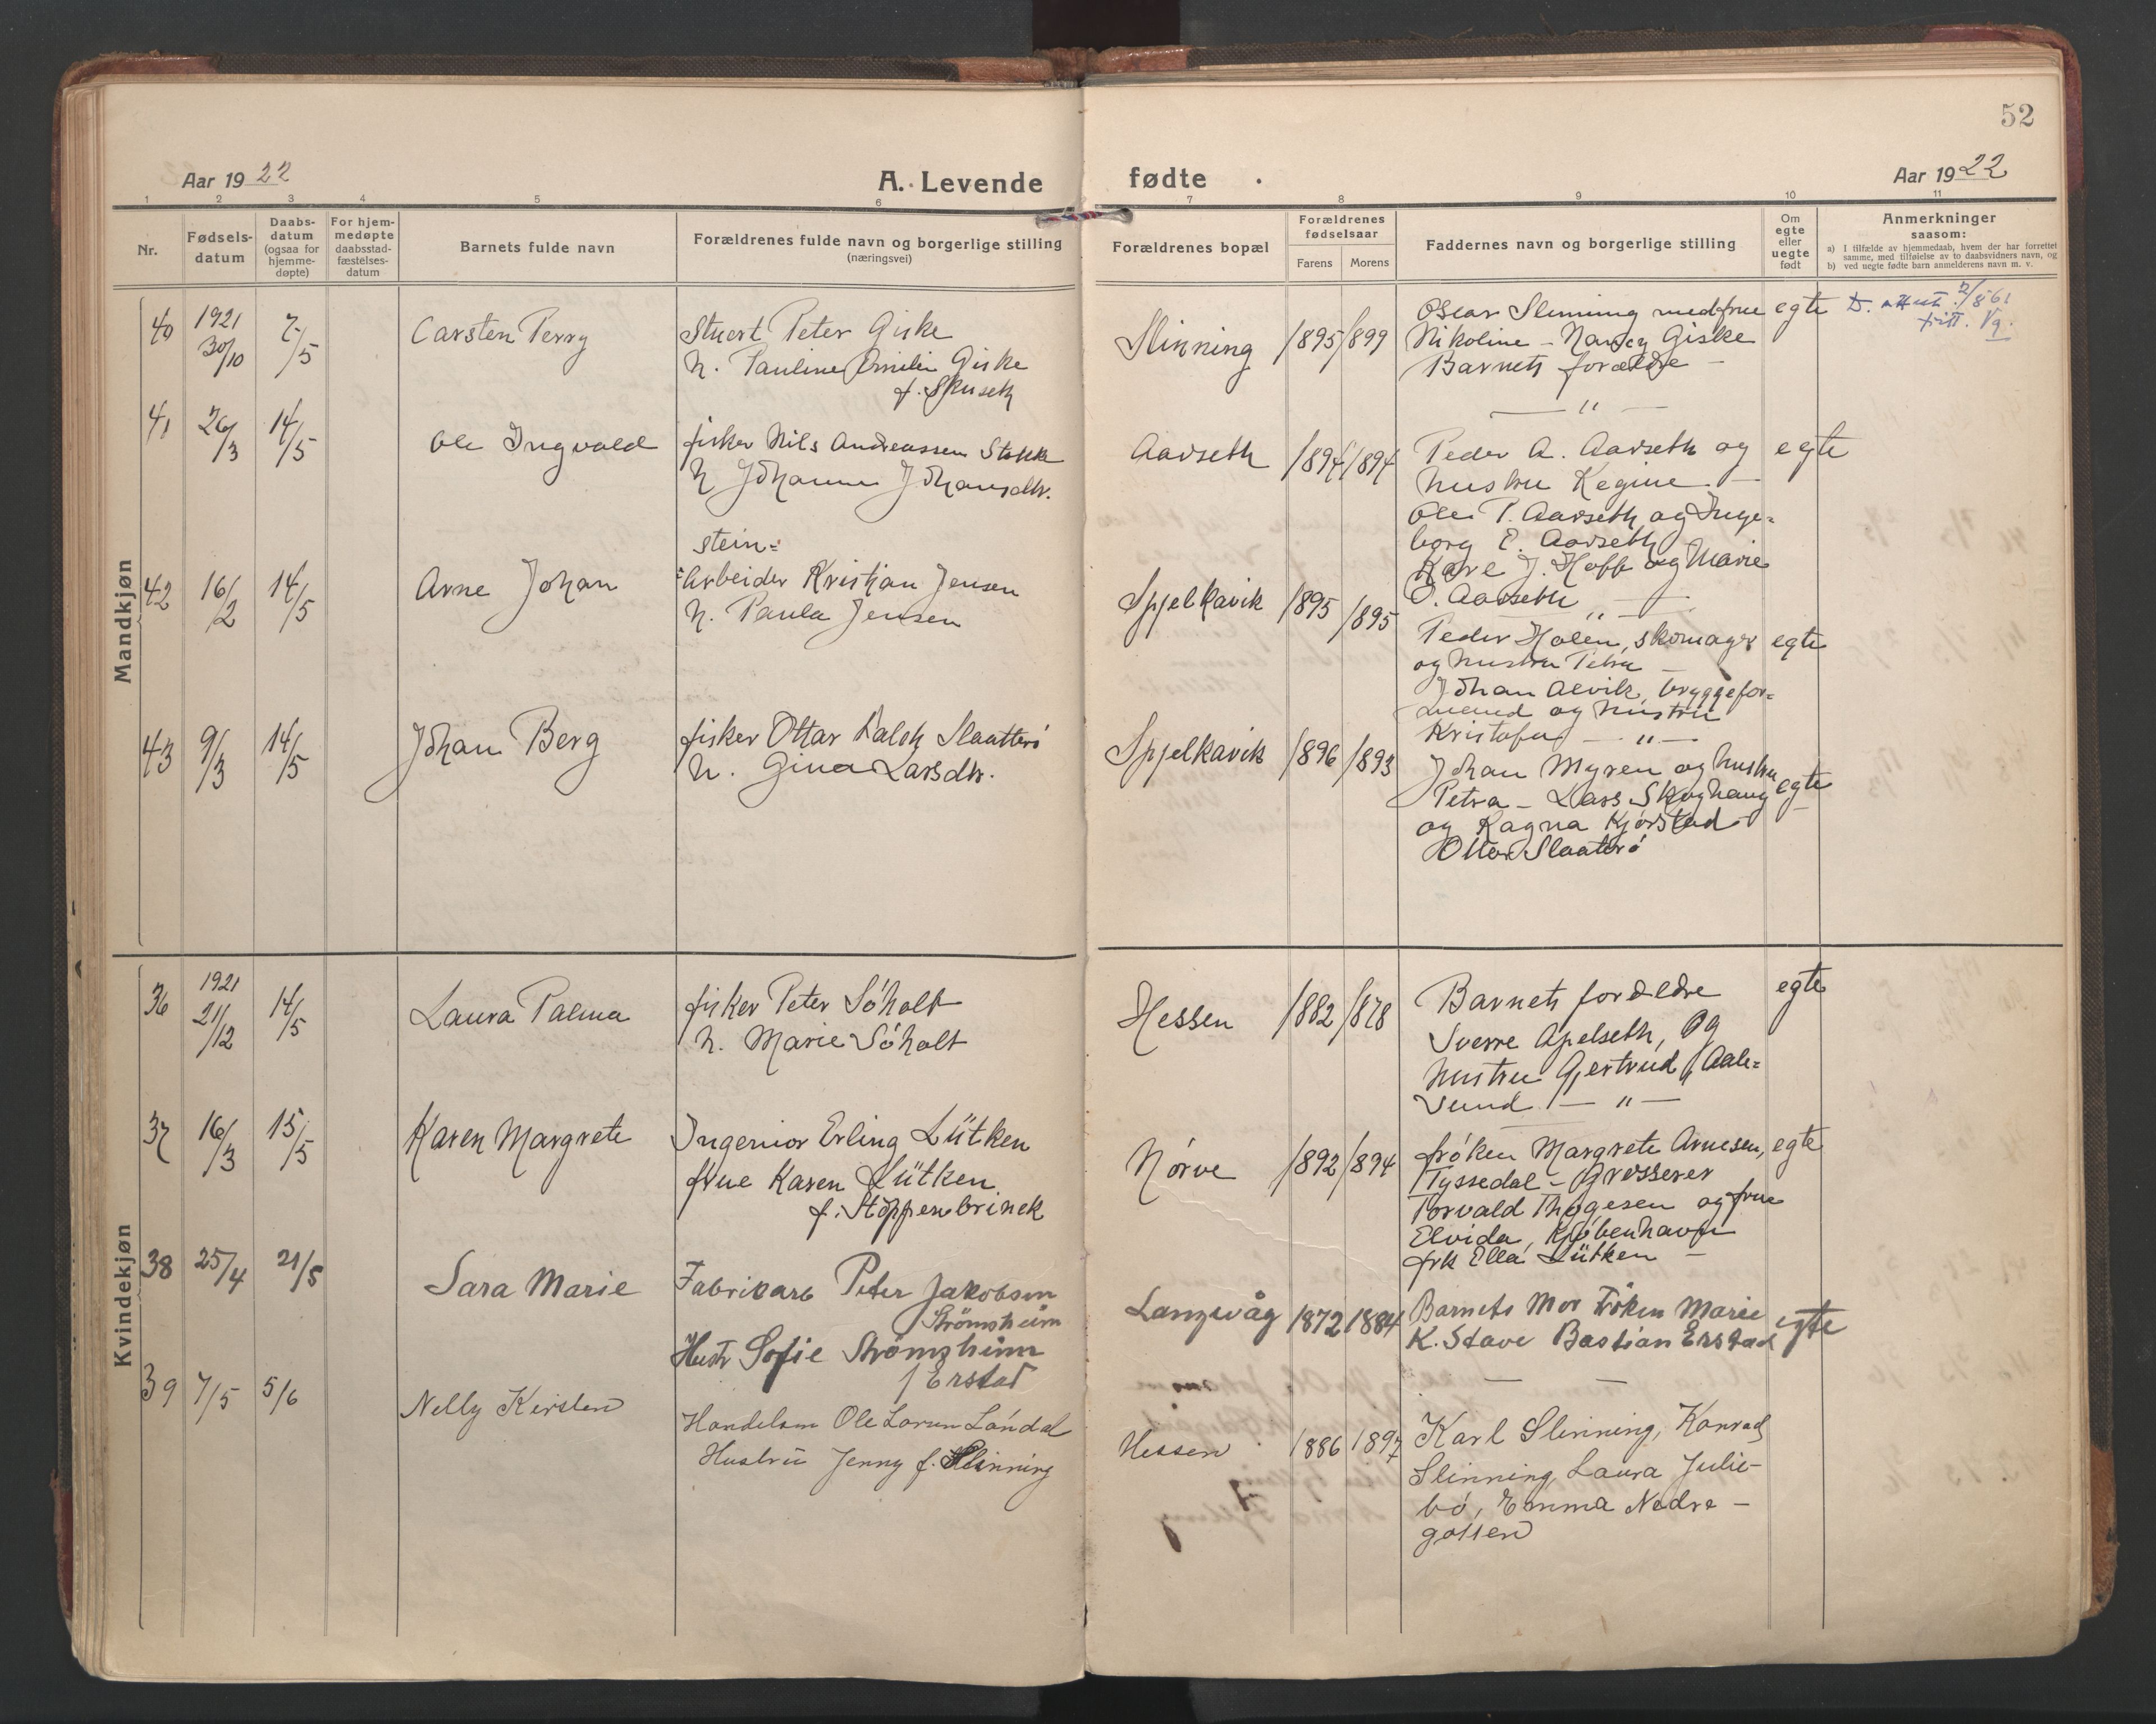 52
Aar 1922
A. Levende
fødte
Aar 1922
1 2 3 4 5 6 7 8 9 10 11
Nr.
Fødsels-
datum
Daabs-
datum
(ogsaa for
hjemme-
døpte)
For hjem-
medøpte
daabsstad-
fæstelses-
datum
Barnets fulde navn
Forældrenes fulde navn og borgerlige stilling
(næringsvei)
Forældrenes bopæl
Forældrenes
fødselsaar
Farens Morens
Faddernes navn og borgerlige stilling
Om
egte
eller
uegte
født
Anmerkninger
saasom:
a) I tilfælde av hjemmedaab, hvem der har forrettet
samme, med tilføielse av to daabsvidners navn, og
b) ved uegte fødte barn anmelderens navn m. v.
Mandkjøn
40
1921
30/10
7/5
Carsten Perry
Stuert Peter Giske
h. Pauline Emilie Giske
f. Spuseth
Slinning
1895 1899
Oscar Slinning med frue
Nikoline - Nancy Giske
Barnets forældre -
— " —
egte
D. attest 2/8 61
41
26/3
14/5
Ole Ingvald
fisker Nils Andreassen Stokke
h Johanne Johansdtr.
Aarseth
1894 1894
Peder A. Aarseth og
hustru Regine. -
Ole P. Aarseth og Inge=
borg E. Aarseth
Kare J. Hoff og Marie
O. Aarseth " —
egte
42
16/2
14/5
Arne Johan
stein=
=arbeider Kristian Jensen
h. Paula Jensen
Spjelkavik
1895 1895
Peder Holen, skomager
og hustru Petra -
Johan Alvik, bryggefor=
mand og hustru
Kristofa — " —
egte
43
9/3
14/5
Johan Berg
fisker Ottar Falch Slaatterö
h. Gina Larsdtr.
Spjelkavik
1896 1893
Johan Myren og hustru
Petra - Lars Skoghaug
og Ragna Kjörstad
Ottar Slaatterö
egte
Kvindekjøn
36
1921
21/12
14/5
Laura Palma
fisker Peter Söholt
h. Marie Söholt
Hessen
1882 1878
Barnets forældre
Sverre Apelseth, og
hustru Gjertrud, Aale=
sund. — " —
egte
37
16/3
15/5
Karen Margrete
Ingeniør Erling Lütken
frue Karen Lütken
f. Stöppenbrinck
Nörve
1892 1894
fröken Margrete Arnesen,
Tyssedal - Grosserer
Torvald Thygesen og frue
Elvida, Kjøbenhavn
frk Ella Lütken -
egte
38
25/4
21/5
Sara Marie
Fabrikarb Peter Jakobsen
Strömsheim
Hustr Sofie Strömsheim
f Erstad
Langevåg
1872 1884
Barnets Mor Fröken Marie
K. Stave Bastian Erstad
egte
39
7/5
5/6
Nelly Kirsten
Handelsm Ole Larsen Löndal
Hustru Jenny f. Slinning
Hessen
1886 1897
Karl Slinning, Konrad
Slinning, Laura Julie-
bö, Emma Nedre -
gotten